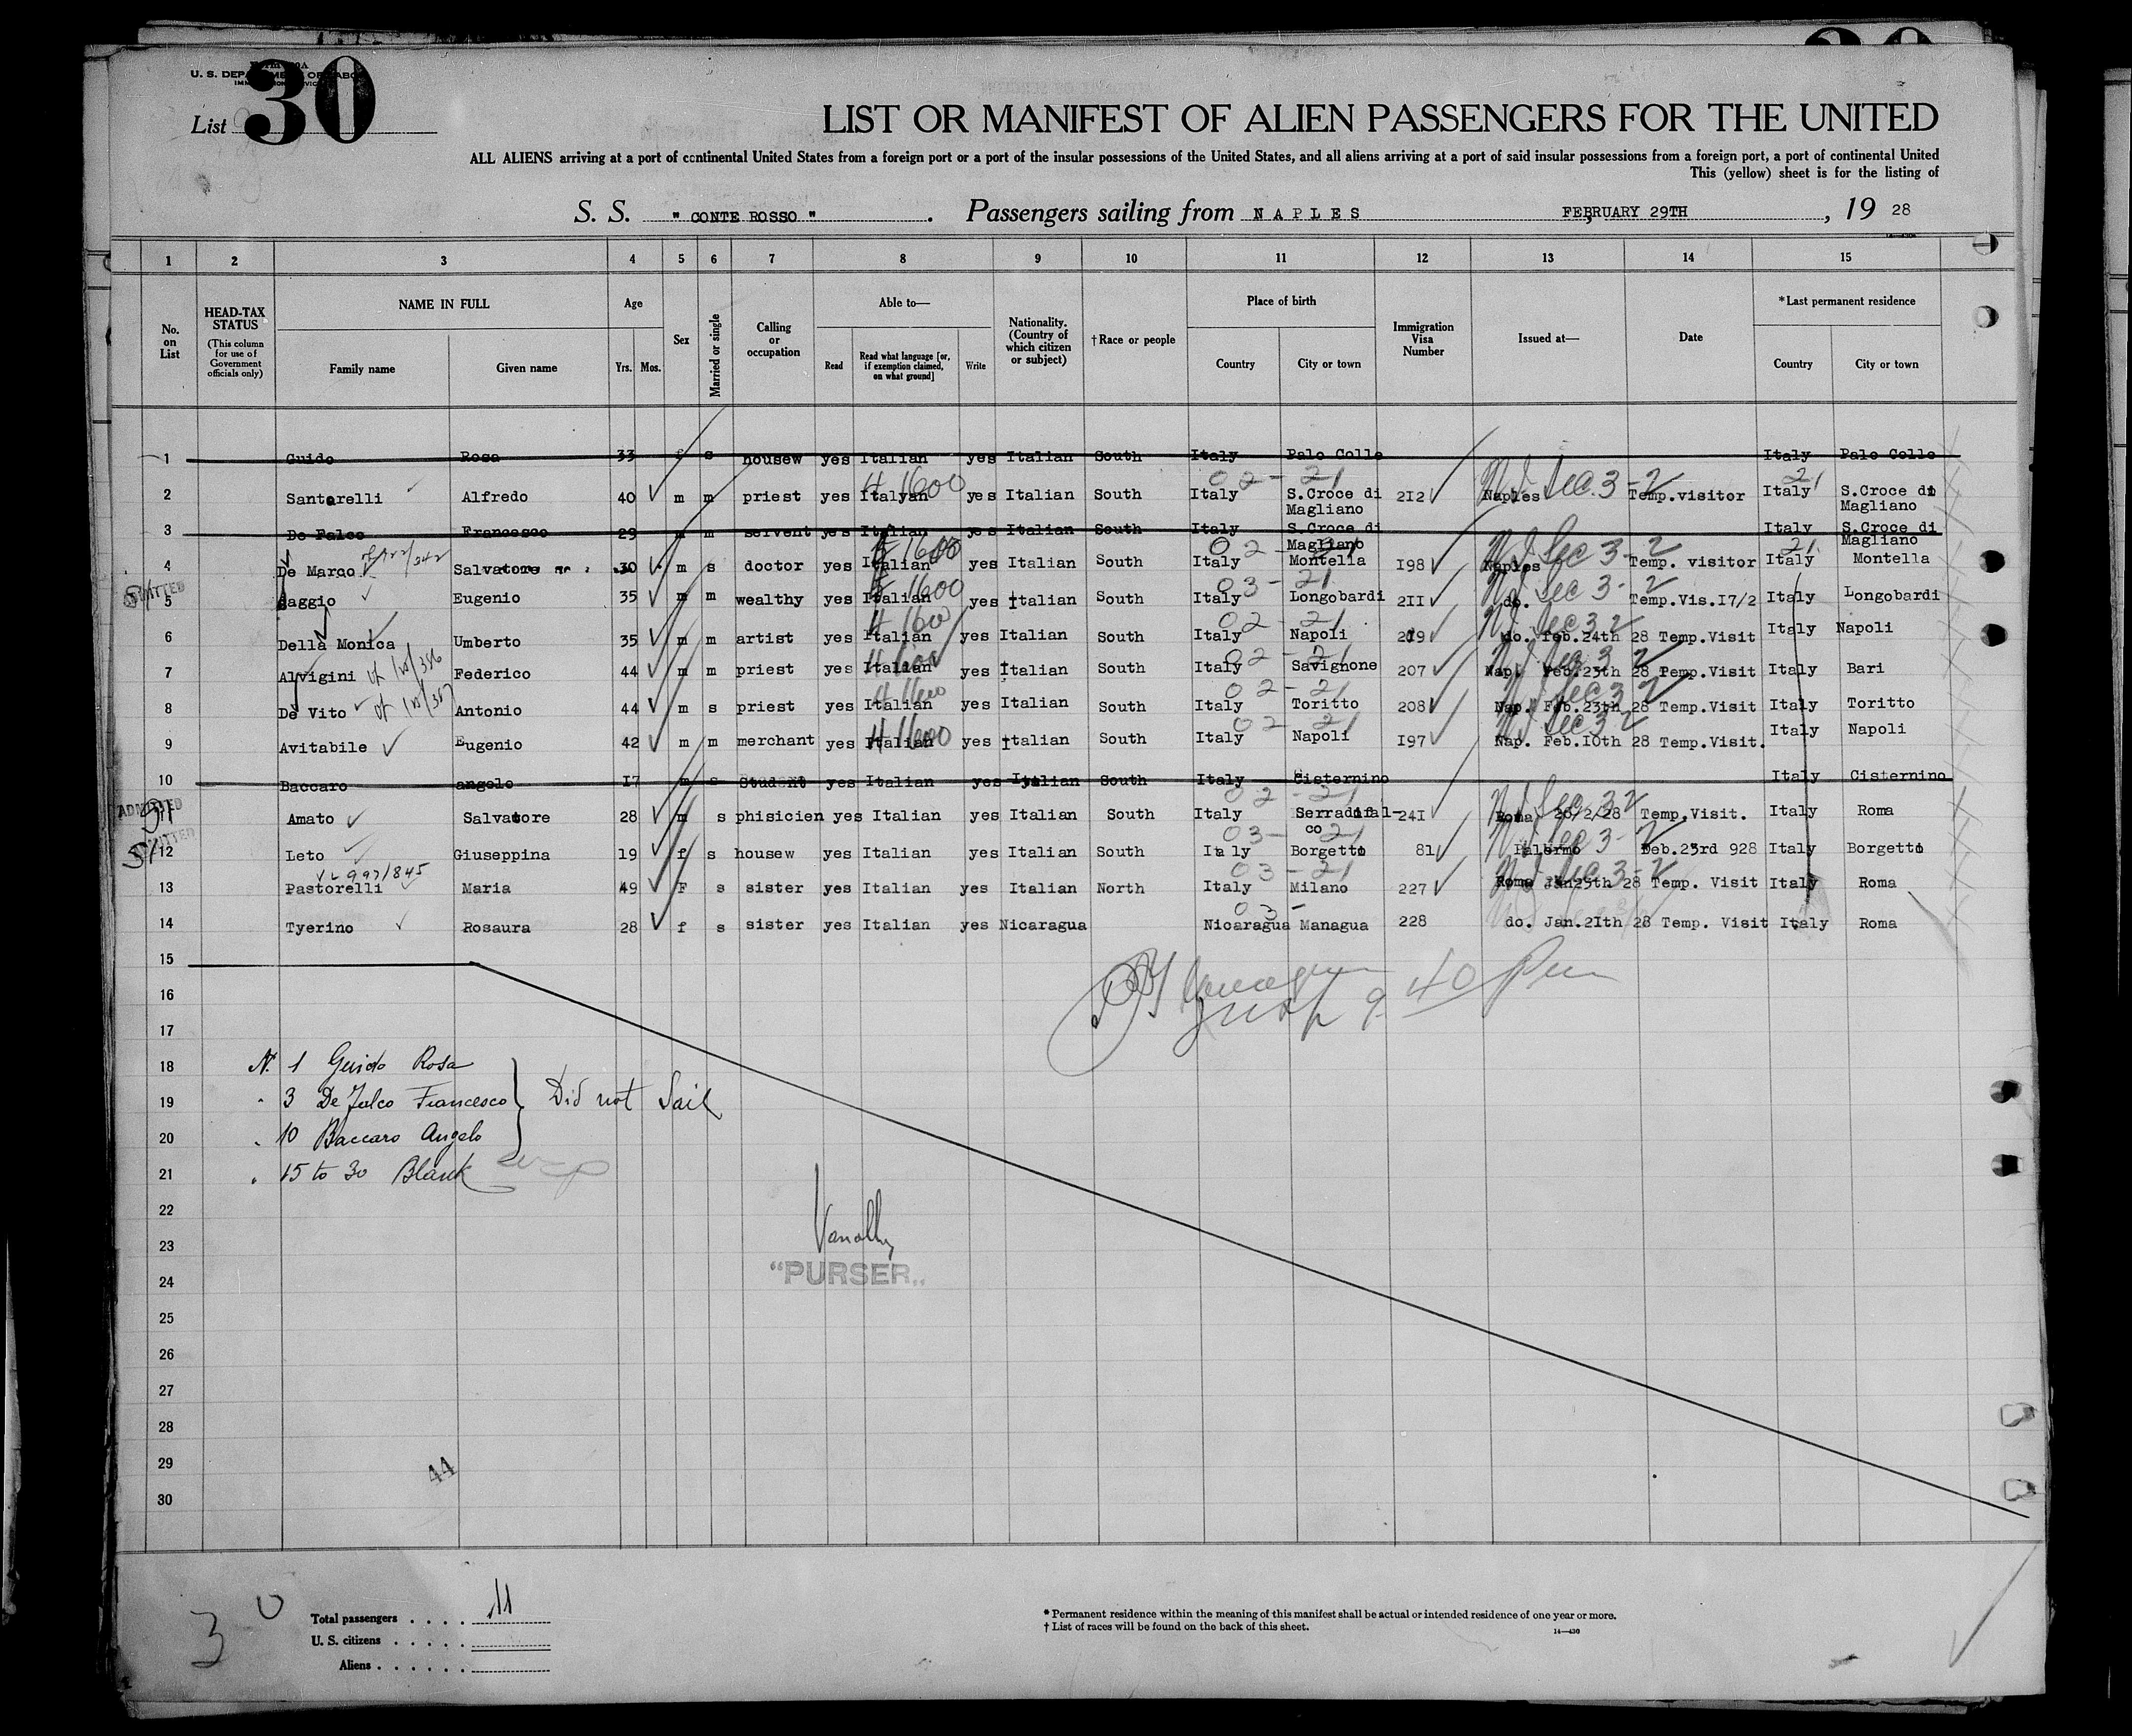 U. S. DEPARTMENT OF LABOR
List 30
LIST OR MANIFEST OF ALIEN PASSENGERS FOR THE UNITED
ALL ALIENS arriving at a port of continental United States from a foreign port or a port of the insular possessions of the United States, and all aliens arriving at a port of said insular possessions from a foreign port, a port of continental United
This (yellow) sheet is for the listing of
S. S. " CONTE ROSSO " . Passengers sailing from NAPLES FEBRUARY 29TH , 19 28
1 2 3 4 5 6 7 8 9 10 11 12 13 14 15
No. on List HEAD-TAX STATUS (This column for use of Government officials only) NAME IN FULL Family name Given name Age Yrs. Mos. Sex Married or single Calling or occupation Able to— Read Read what language [or, if exemption claimed, on what ground] Write Nationality. (Country of which citizen or subject) †Race or people Place of birth Country City or town Immigration Visa Number Issued at— Date *Last permanent residence Country City or town
1 Guido Rosa 33 f s housew yes Italian yes Italian South Italy Palo Colle Italy Palo Colle
2 Santarelli Alfredo 40 m m priest yes Italyan yes Italian South Italy S.Croce di Magliano 212 Naples Temp.visitor Italy S.Croce di Magliano
3 De Falco Francesco 29 m m servent yes Italian yes Italian South Italy S.Croce di Magliano Italy S.Croce di Magliano
4 De Marco Salvatore 30 m s doctor yes Italian yes Italian South Italy Montella I98 Naples Temp. visitor Italy Montella
5 Saggio Eugenio 35 m m wealthy yes Italian yes Italian South Italy Longobardi 2II do. Temp.Vis.I7/2 Italy Longobardi
6 Della Monica Umberto 35 m m artist yes Italian yes Italian South Italy Napoli 209 do. Feb.24th 28 Temp.Visit Italy Napoli
7 Alvigini Federico 44 m m priest yes Italian yes Italian South Italy Savignone 207 Nap. Feb.23th 28 Temp.Visit Italy Bari
8 De Vito Antonio 44 m s priest yes Italian yes Italian South Italy Toritto 208 Nap. Feb.23th 28 Temp.Visit Italy Toritto
9 Avitabile Eugenio 42 m m merchant yes Italian yes Italian South Italy Napoli I97 Nap. Feb.IOth 28 Temp.Visit. Italy Napoli
10 Baccaro angelo I7 m s Student yes Italian yes Italian South Italy Cisternino Italy Cisternino
11 Amato Salvatore 28 m s phisicien yes Italian yes Italian South Italy Serradifal-co 24I Roma 20/2/28 Temp.Visit. Italy Roma
12 Leto Giuseppina 19 f s housew yes Italian yes Italian South Italy Borgetto 81 Palermo Deb.23rd 928 Italy Borgetto
13 Pastorelli Maria 49 F s sister yes Italian yes Italian North Italy Milano 227 Roma Jan25th 28 Temp. Visit Italy Roma
14 Tyerino Rosaura 28 f s sister yes Italian yes Nicaragua Nicaragua Managua 228 do. Jan.2Ith 28 Temp. Visit Italy Roma
15
16
17
18 N. 1 Guido Rosa
19 3 De Falco Francesco Did not Sail
20 10 Baccaro Angelo
21 15 to 30 Blank
22
23
24 "PURSER"
25
26
27
28
29 44
30
30
Total passengers . . . . 11
U. S. citizens . . . . .
Aliens . . . . . .
* Permanent residence within the meaning of this manifest shall be actual or intended residence of one year or more.
† List of races will be found on the back of this sheet.
14—430